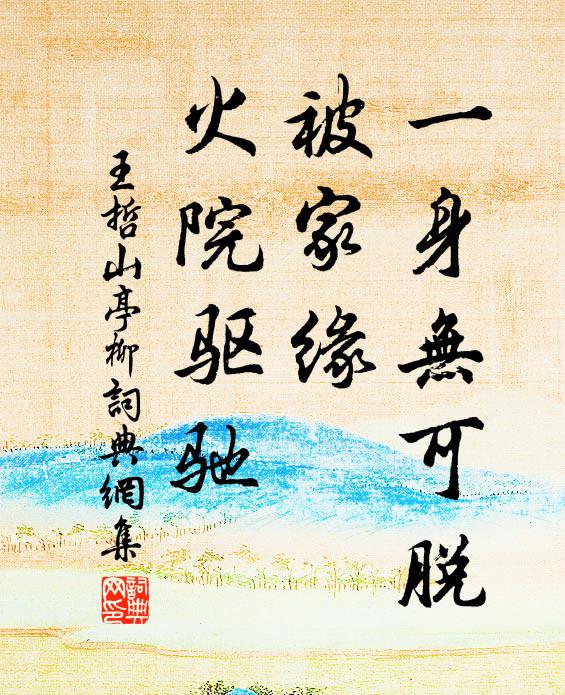 一身無可脫
被家緣
火院驱驰
王哲山亭柳詞典網集
詞典
网印